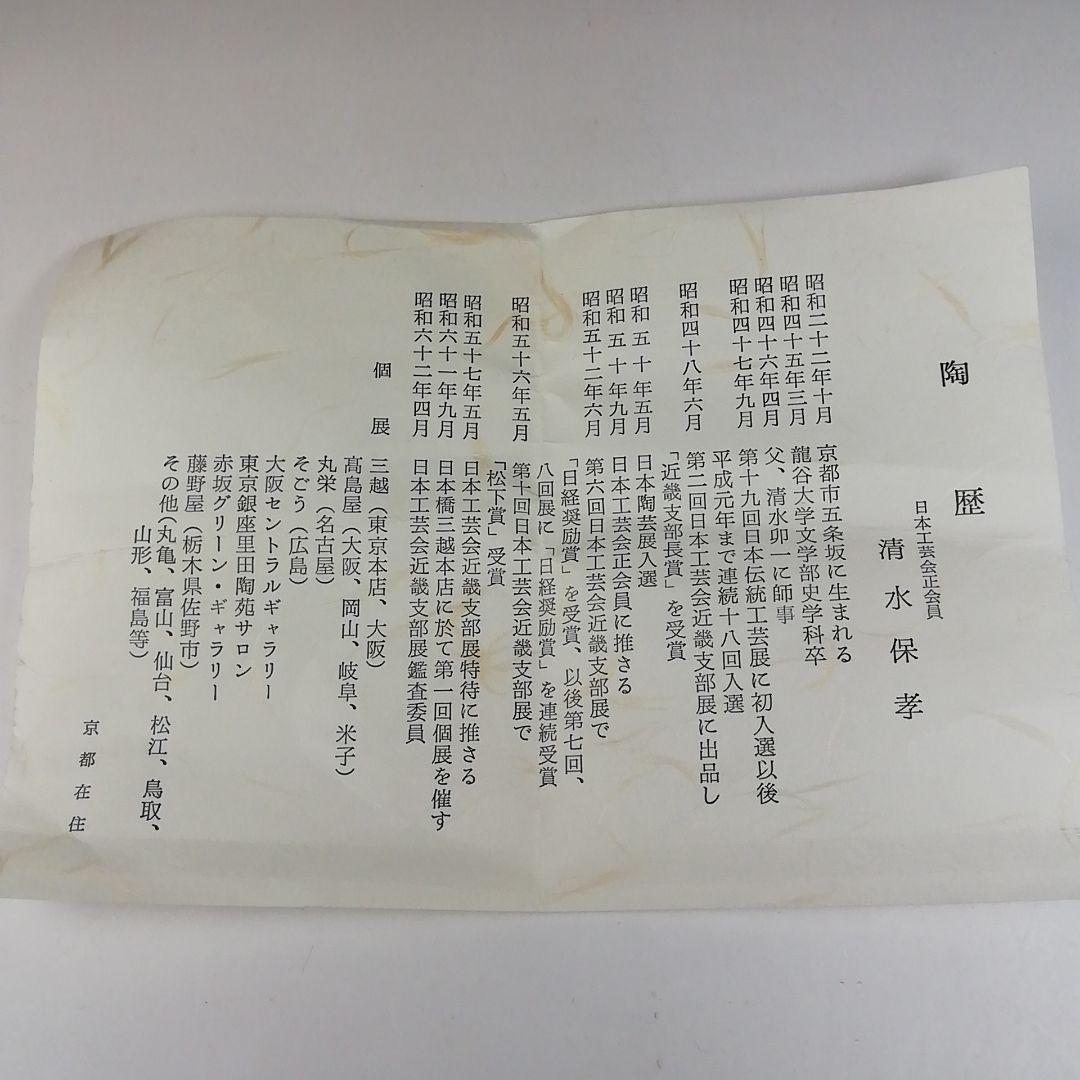 陶歴
日本工芸会正会員
清水保孝
昭和二十二年十月 京都市五条坂に生まれる
昭和四十五年三月 龍谷大学文学部史学科卒
昭和四十六年四月 父、清水卯一に師事
昭和四十七年九月 第十九回日本伝統工芸展に初入選以後
平成元年まで連続十八回入選
昭和四十八年六月 第二回日本工芸会近畿支部展に出品し
「近畿支部長賞」を受賞
昭和五十年五月 日本陶芸展入選
昭和五十年九月 日本工芸会正会員に推さる
昭和五十二年六月 第六回日本工芸会近畿支部展で
「日経奨励賞」を受賞、以後第七回、
八回展に「日経奨励賞」を連続受賞
昭和五十六年五月 第十回日本工芸会近畿支部展で
「松下賞」受賞
昭和五十七年五月 日本工芸会近畿支部展特待に推さる
昭和六十一年九月 日本橋三越本店に於て第一回個展を催す
昭和六十二年四月 日本工芸会近畿支部展鑑査委員
個展 三越（東京本店、大阪）
高島屋（大阪、岡山、岐阜、米子）
丸栄（名古屋）
そごう（広島）
大阪セントラルギャラリー
東京銀座里田陶苑サロン
赤坂グリーン・ギャラリー
藤野屋（栃木県佐野市）
その他（丸亀、富山、仙台、松江、鳥取、
山形、福島等）
京都在住